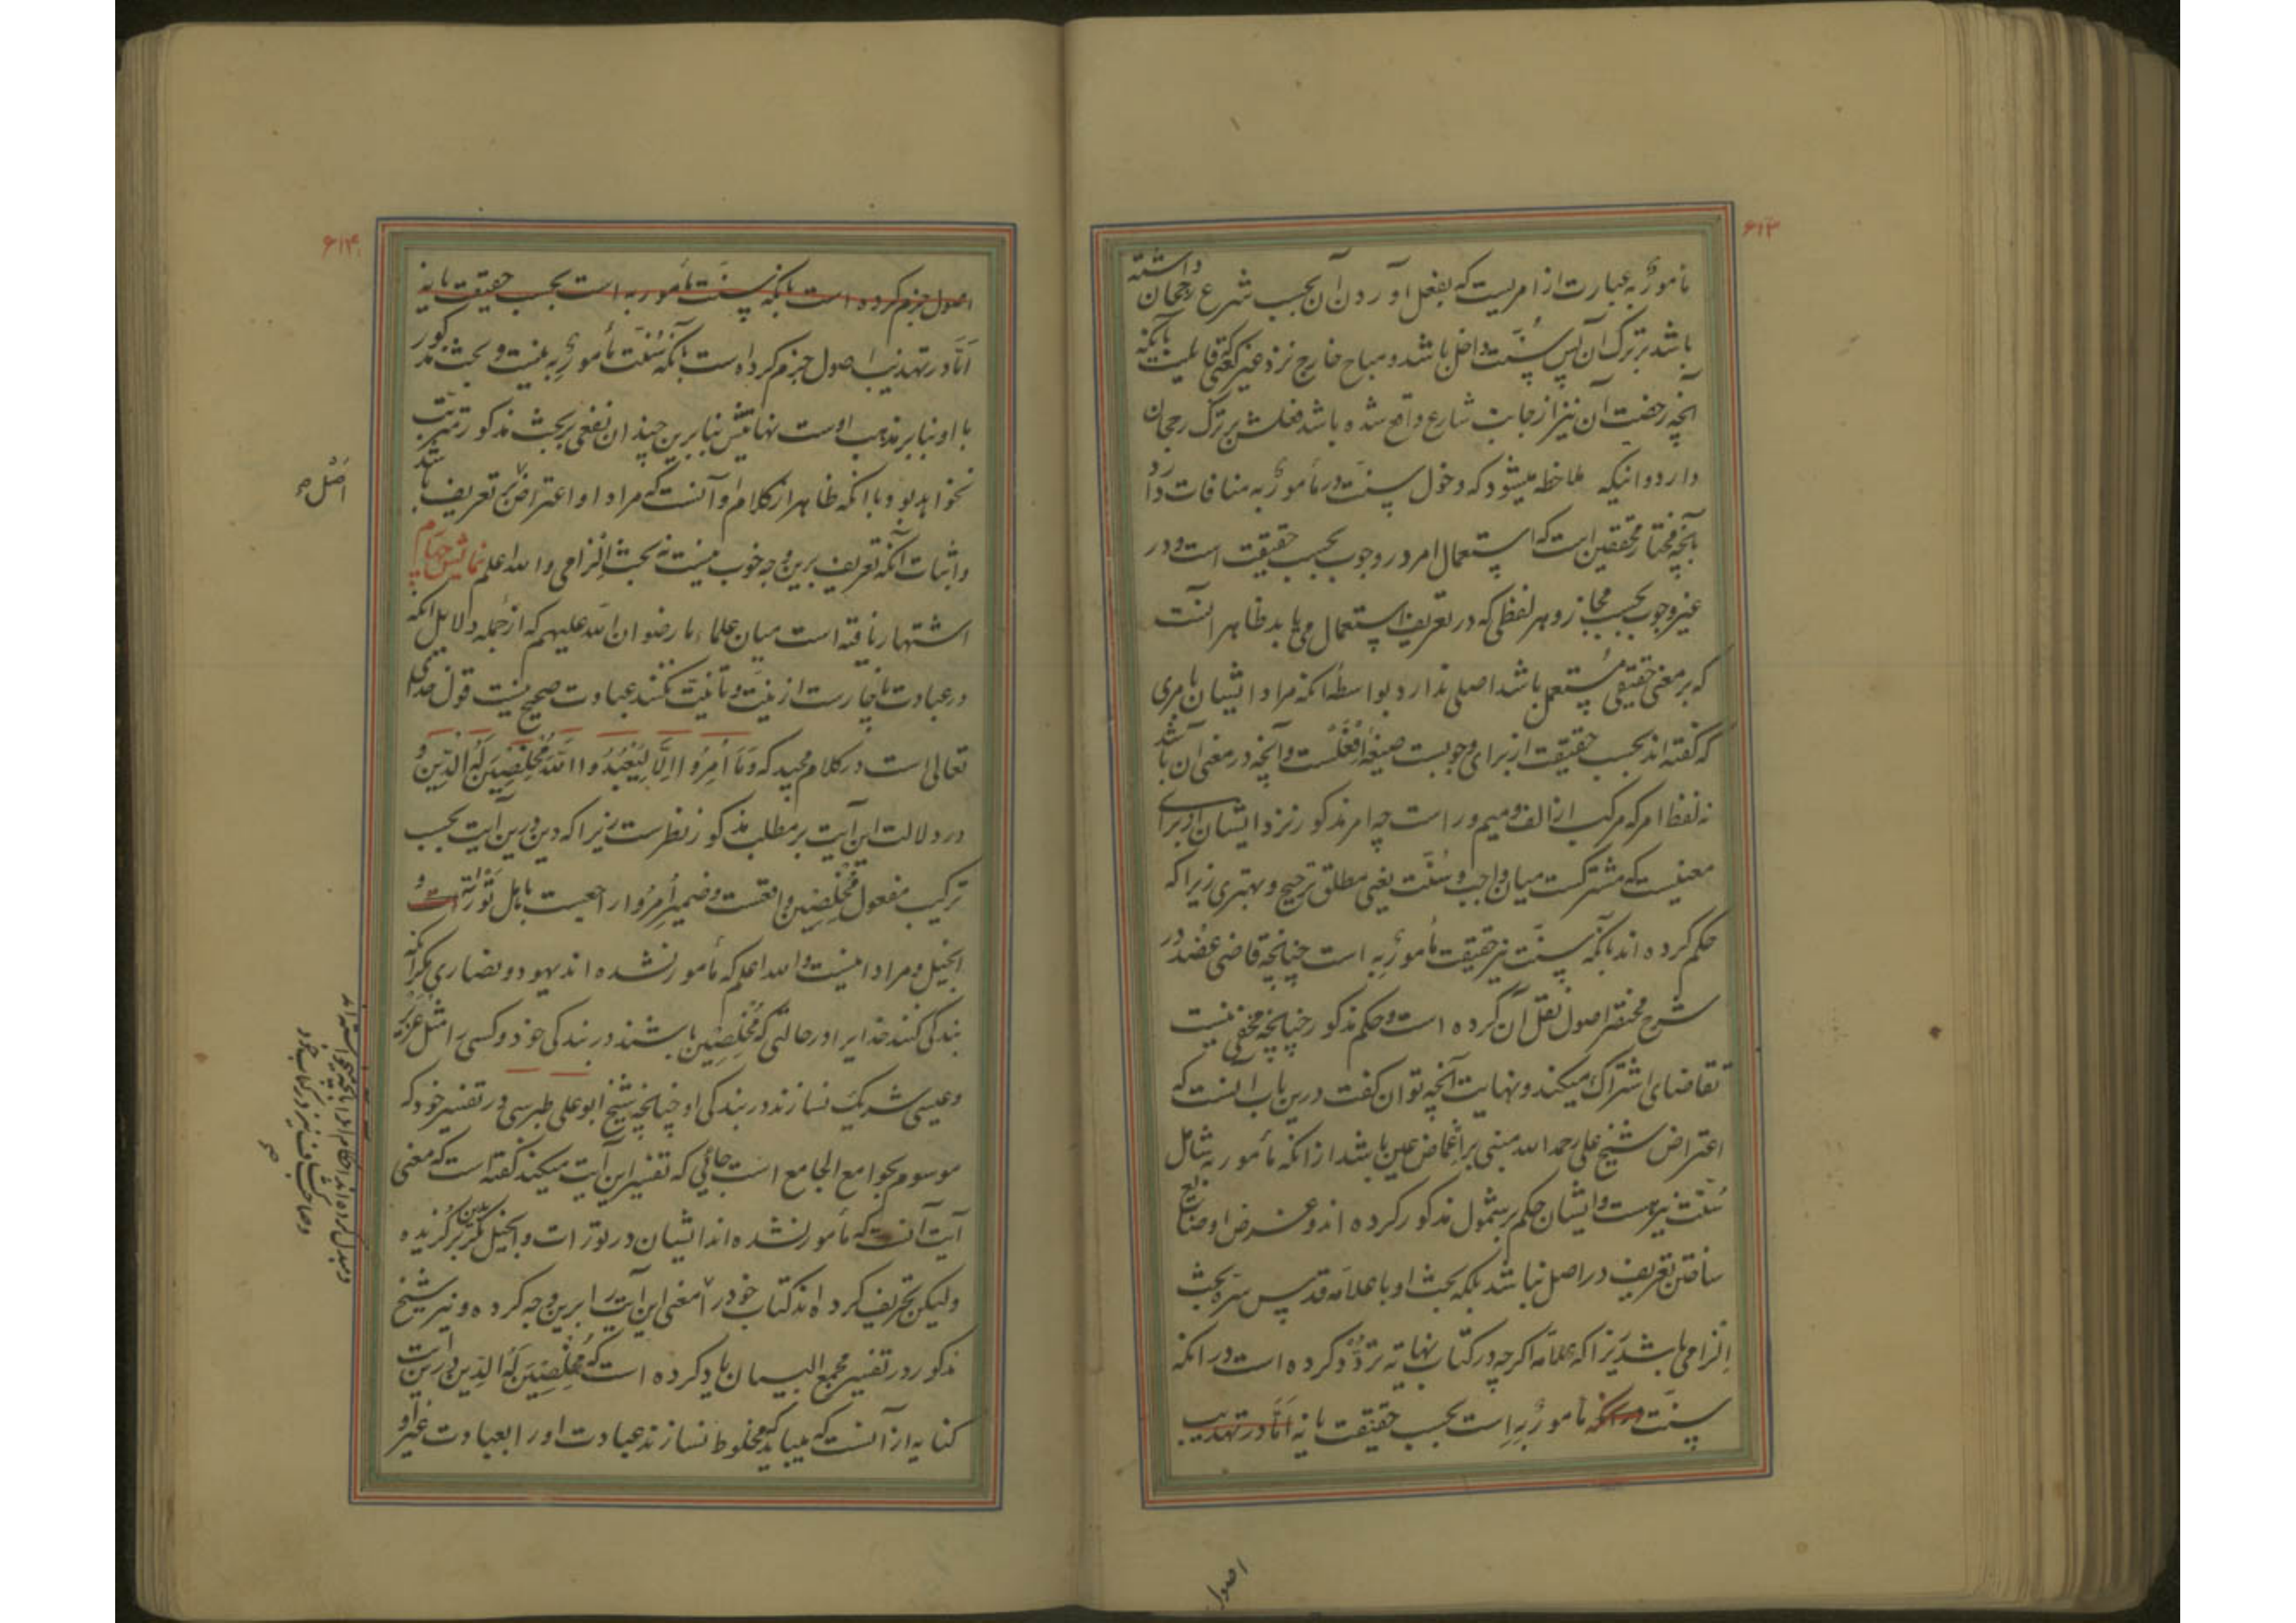 ۶۱۳
مأمورٌ به عبارت از امریست که بفعل آوردن آن بحسب شرع رجحان داشته
باشد بر ترک آن پس سنّت داخل باشد و مباح خارج نزد غیر کعبی قایلست بآنکه
آنچه رخصت آن نیز از جانب شارع واقع شده باشد فعلش بر ترک رجحان
دارد و اینکه ملاحظه میشود که دخول سنّت در مأمورٌ به منافات دارد
بآنچه مختار محققین است که استعمال امر در وجوب بحسب حقیقت است و در
غیر وجوب بحسب مجاز و هر لفظی که در تعریف استعمال می یابد ظاهر آنست
که بر معنی حقیقی مُستعمل باشد اصلی ندارد بواسطهٔ آنکه مراد ایشان بامری
که گفته اند بحسب حقیقت از برای وجوبست صیغهٔ اِفْعَلْست و آنچه در معنی آن باشد
نه لفظ امر که مرکب از الف و میم و را است چه امر مذکور نزد ایشان از برای
معنیست که مشترکست میان واجب و سُنّت یعنی مطلق ترجیح و بهتری زیرا که
حکم کرده اند بآنکه سنّت نیز حقیقت مأمورٌ بِه است چنانچه قاضی عضُد در
شرح مختصر اصول نقل آن کرده است و حکم مذکور چنانچه مخفی نیست
تقاضای اشتراک میکند و نهایت آنچه توان گفت درین باب آنست که
اعتراض شیخ علی رحمه الله مبنی بر اِغماض عین باشد از آنکه مأمور به شامل
سُنّت نیز هست و ایشان حکم بر شمول مذکور کرده اند و غرض او ضایع
ساختن تعریف در اصل نباشد بلکه بحث او با علامه قدس سرّه بحث
اِلزامی باشد زیرا که علامه اگرچه در کتاب نهایه تردّد کرده است در آنکه
سنّت در آنکه مأمورٌ بِه است بحسب حقیقت یا نه اَمّا در تهذیب
اصول
۶۱۴
اصول جزم کرده است بآنکه سنّت مأمور به است بحسب حقیقت یا نه
اَمّا در تهذیب اصول جزم کرده است بآنکه سُنّت مأمورٌ بِه نیست و بحث مذکور
با او بنا بر مذهب اوست نهایتش بنا برین چندان نفعی بر بحث مذکور مترتب
نخواهد بود با آنکه ظاهر از کلام او آنست که مراد او اعتراض بر تعریف باشد
و اثبات آنکه تعریف برین وجه خوب نیست نه بحث اِلزامی و الله اعلم نمایش چهارم
اشتهار یافته است میان علماء ما رضوان الله علیهم که از جمله دلایل آنکه
در عبادت ناچارست از نیّت و تا نیّت نکنند عبادت صحیح نیست قول خدای
تعالی است در کلام مجید که وَمَا اُمِرُوا اِلَّا لِیَعْبُدُوا اللهَ مُخْلِصِینَ لَهُ الدِّینَ و
در دلالت این آیت بر مطلب مذکور نظرست زیرا که دین درین آیت بحسب
ترکیب مفعول مُخْلِصِین واقعست و ضمیر اُمِرُوا راجعست باهل تَوراة و
انجیل و مراد اینست و الله اعلم که مأمور نشده اند یهود و نصاری مگر آنکه
بندگی کنند خدایرا در حالتی که مُخْلِصِین باشند در بندگی خود و کسی را مثل عُزَیْر
و عیسی شریک نسازند در بندگی او چنانچه شیخ ابو علی طبرسی در تفسیر خود که
موسوم بجوامع الجامع است جائی که تفسیر این آیت میکند گفته است که معنی
آیت آنست که مأمور نشده اند ایشان در تورات و انجیل مگر بدین برگزیده
ولیکن تحریف کرده اند کتاب خود را معنی این آیت را برین وجه کرده و نیز شیخ
مذکور در تفسیر مجمع البیان یاد کرده است که مُخْلِصِینَ لَهُ الدِّین درین آیت
کنایه از آنست که میباید که مخلوط نسازند عبادت او را بعبادت غیر او
اَصل
و مبدل کرده اند احکام او را بآنچه میخواسته اند
و صاحب کشاف نیز در کتاب خود